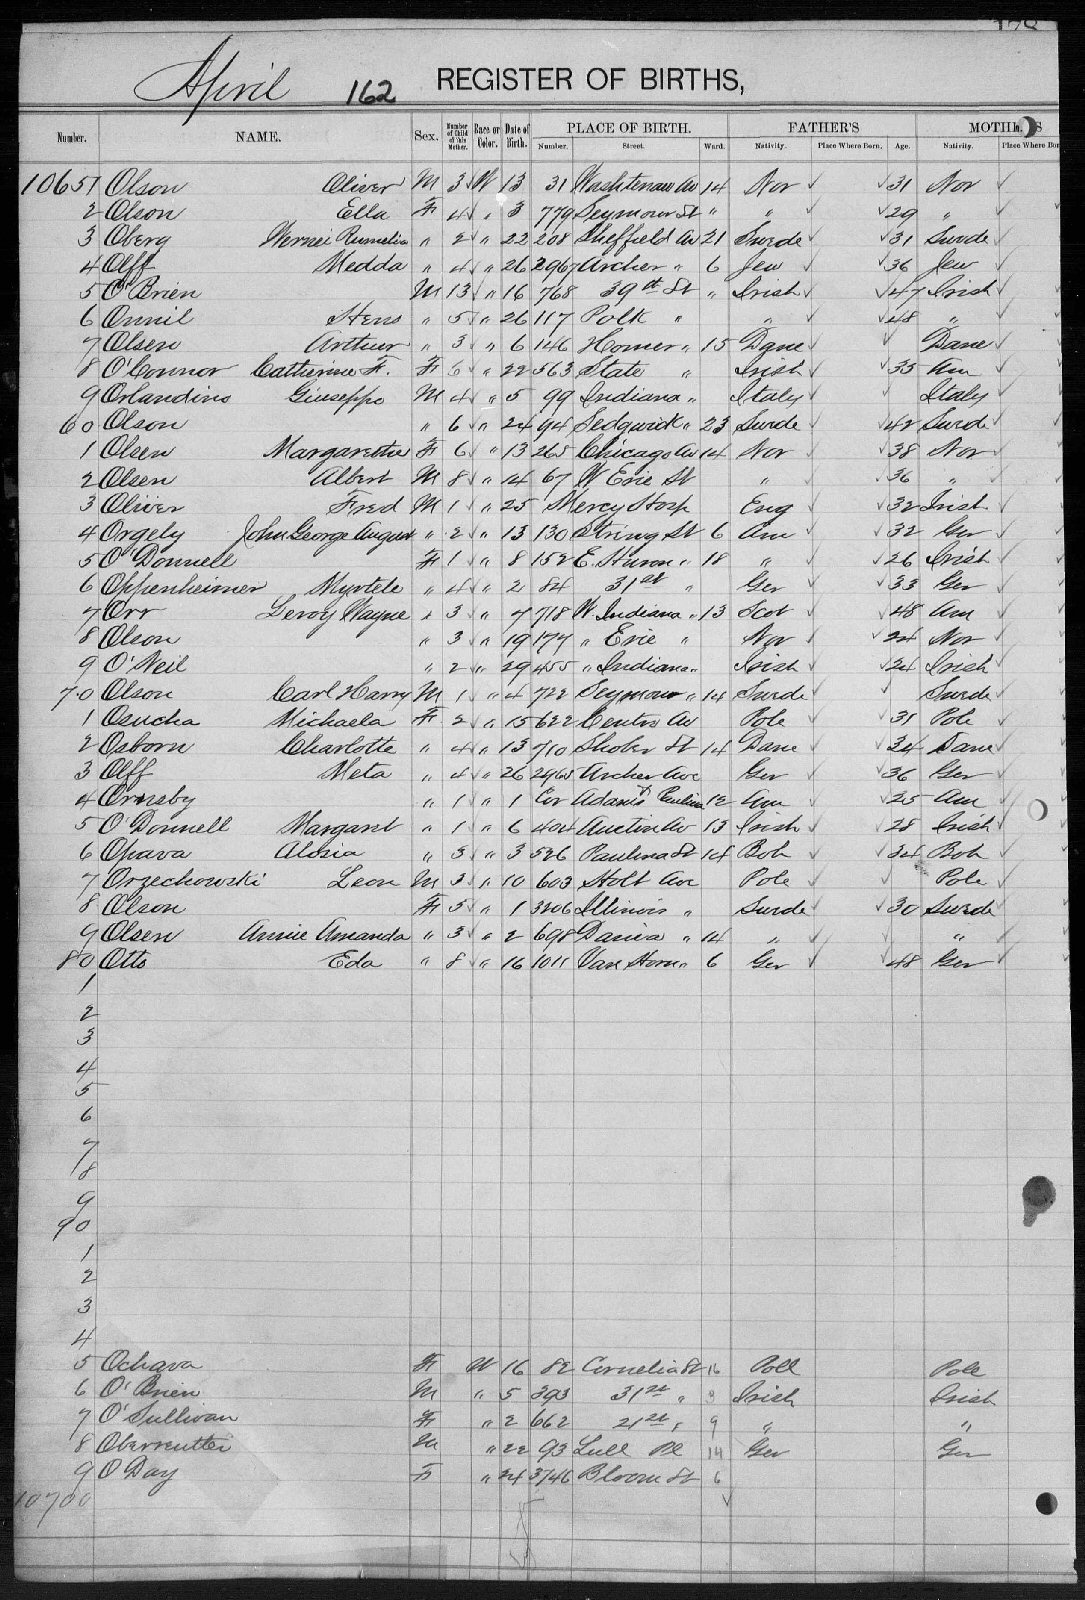 April 162 REGISTER OF BIRTHS,
Number. NAME. Sex. Number of Child of this Mother. Race or Color. Date of Birth. PLACE OF BIRTH. FATHER'S MOTHER'S
Number. Street. Ward. Nativity. Place Where Born. Age. Nativity. Place Where Bor
10651 Olson Oliver M 3 W 13 31 Washtenaw Av 14 Nor 31 Nor
2 Olson Ella F 4 " 3 779 Seymour St " " 29 "
3 Oberg Rumelia " 2 " 22 208 Sheffield Av 21 Swede 31 Swede
4 Olff Medda " 4 " 26 2967 Archer " 6 Jew 36 Jew
5 O'Brien M 13 " 16 768 39th St " Irish 47 Irish
6 Onnil Hens " 5 " 26 117 Polk " " 48 "
7 Olsen Arthur " 3 " 6 146 Homer " 15 Dane Dane
8 O'Connor Catherine F. F 6 " 22 563 State " Irish 35 Am
9 Orlandino Giuseppe M 4 " 5 99 Indiana " Italy Italy
60 Olson " 6 " 24 94 Sedgwick " 23 Swede 42 Swede
1 Olsen Margarethe F 6 " 13 265 Chicago Av 14 Nor 38 Nor
2 Olsen Albert M 8 " 14 67 W Erie St " 36 "
3 Oliver Fred M 1 " 25 Mercy Hosp Eng 32 Irish
4 Orgely John George August " 2 " 13 130 String St 6 Am 32 Ger
5 O'Donnell F 1 " 8 152 E. Huron " 18 " 26 Irish
6 Oppenheimer Myrtele " 4 " 2 84 31st " Ger 33 Ger
7 Orr Leroy Wayne " 3 " 7 718 W Indiana " 13 Scot 48 Am
8 Olson " 3 " 19 177 " Erie " Nor 24 Nor
9 O'Neil " 2 " 29 455 " Indiana " Irish 24 Irish
70 Olson Carl Harry M 1 " 4 722 Seymour " 14 Swede Swede
1 Osucha Michaela F 2 " 15 622 Centre Av Pole 31 Pole
2 Osborn Charlotte " 4 " 13 710 Shober St 14 Dane 34 Dane
3 Olff Meta " 4 " 26 2965 Archer Ave Ger 36 Ger
4 Ornsby " 1 " 1 Cor Adams & Paulina 12 Am 25 Am
5 O'Donnell Margaret " 1 " 6 404 Austin Av 13 Irish 28 Irish
6 Opava Alosia " 3 " 3 526 Paulina St 14 Boh 34 Boh
7 Orzechowski Leon M 3 " 10 603 Holt Ave Pole Pole
8 Olson F 5 " 1 3206 Illinois " Swede 30 Swede
9 Olsen Annie Amanda " 3 " 2 698 Dania " 14 " "
80 Otto Eda " 8 " 16 1011 Van Horn " 6 Ger 48 Ger
1
2
3
4
5
6
7
8
9
90
1
2
3
4
5 Ochava F W 16 82 Cornelia St 16 Poll Pole
6 O'Brien M " 5 393 31st " 9 Irish Irish
7 O'Sullivan F " 2 662 21st " 9 " "
8 Oberreutter M " 22 93 Lull Pl 14 Ger Ger
9 O Day F " 24 3746 Bloom St 6
10700